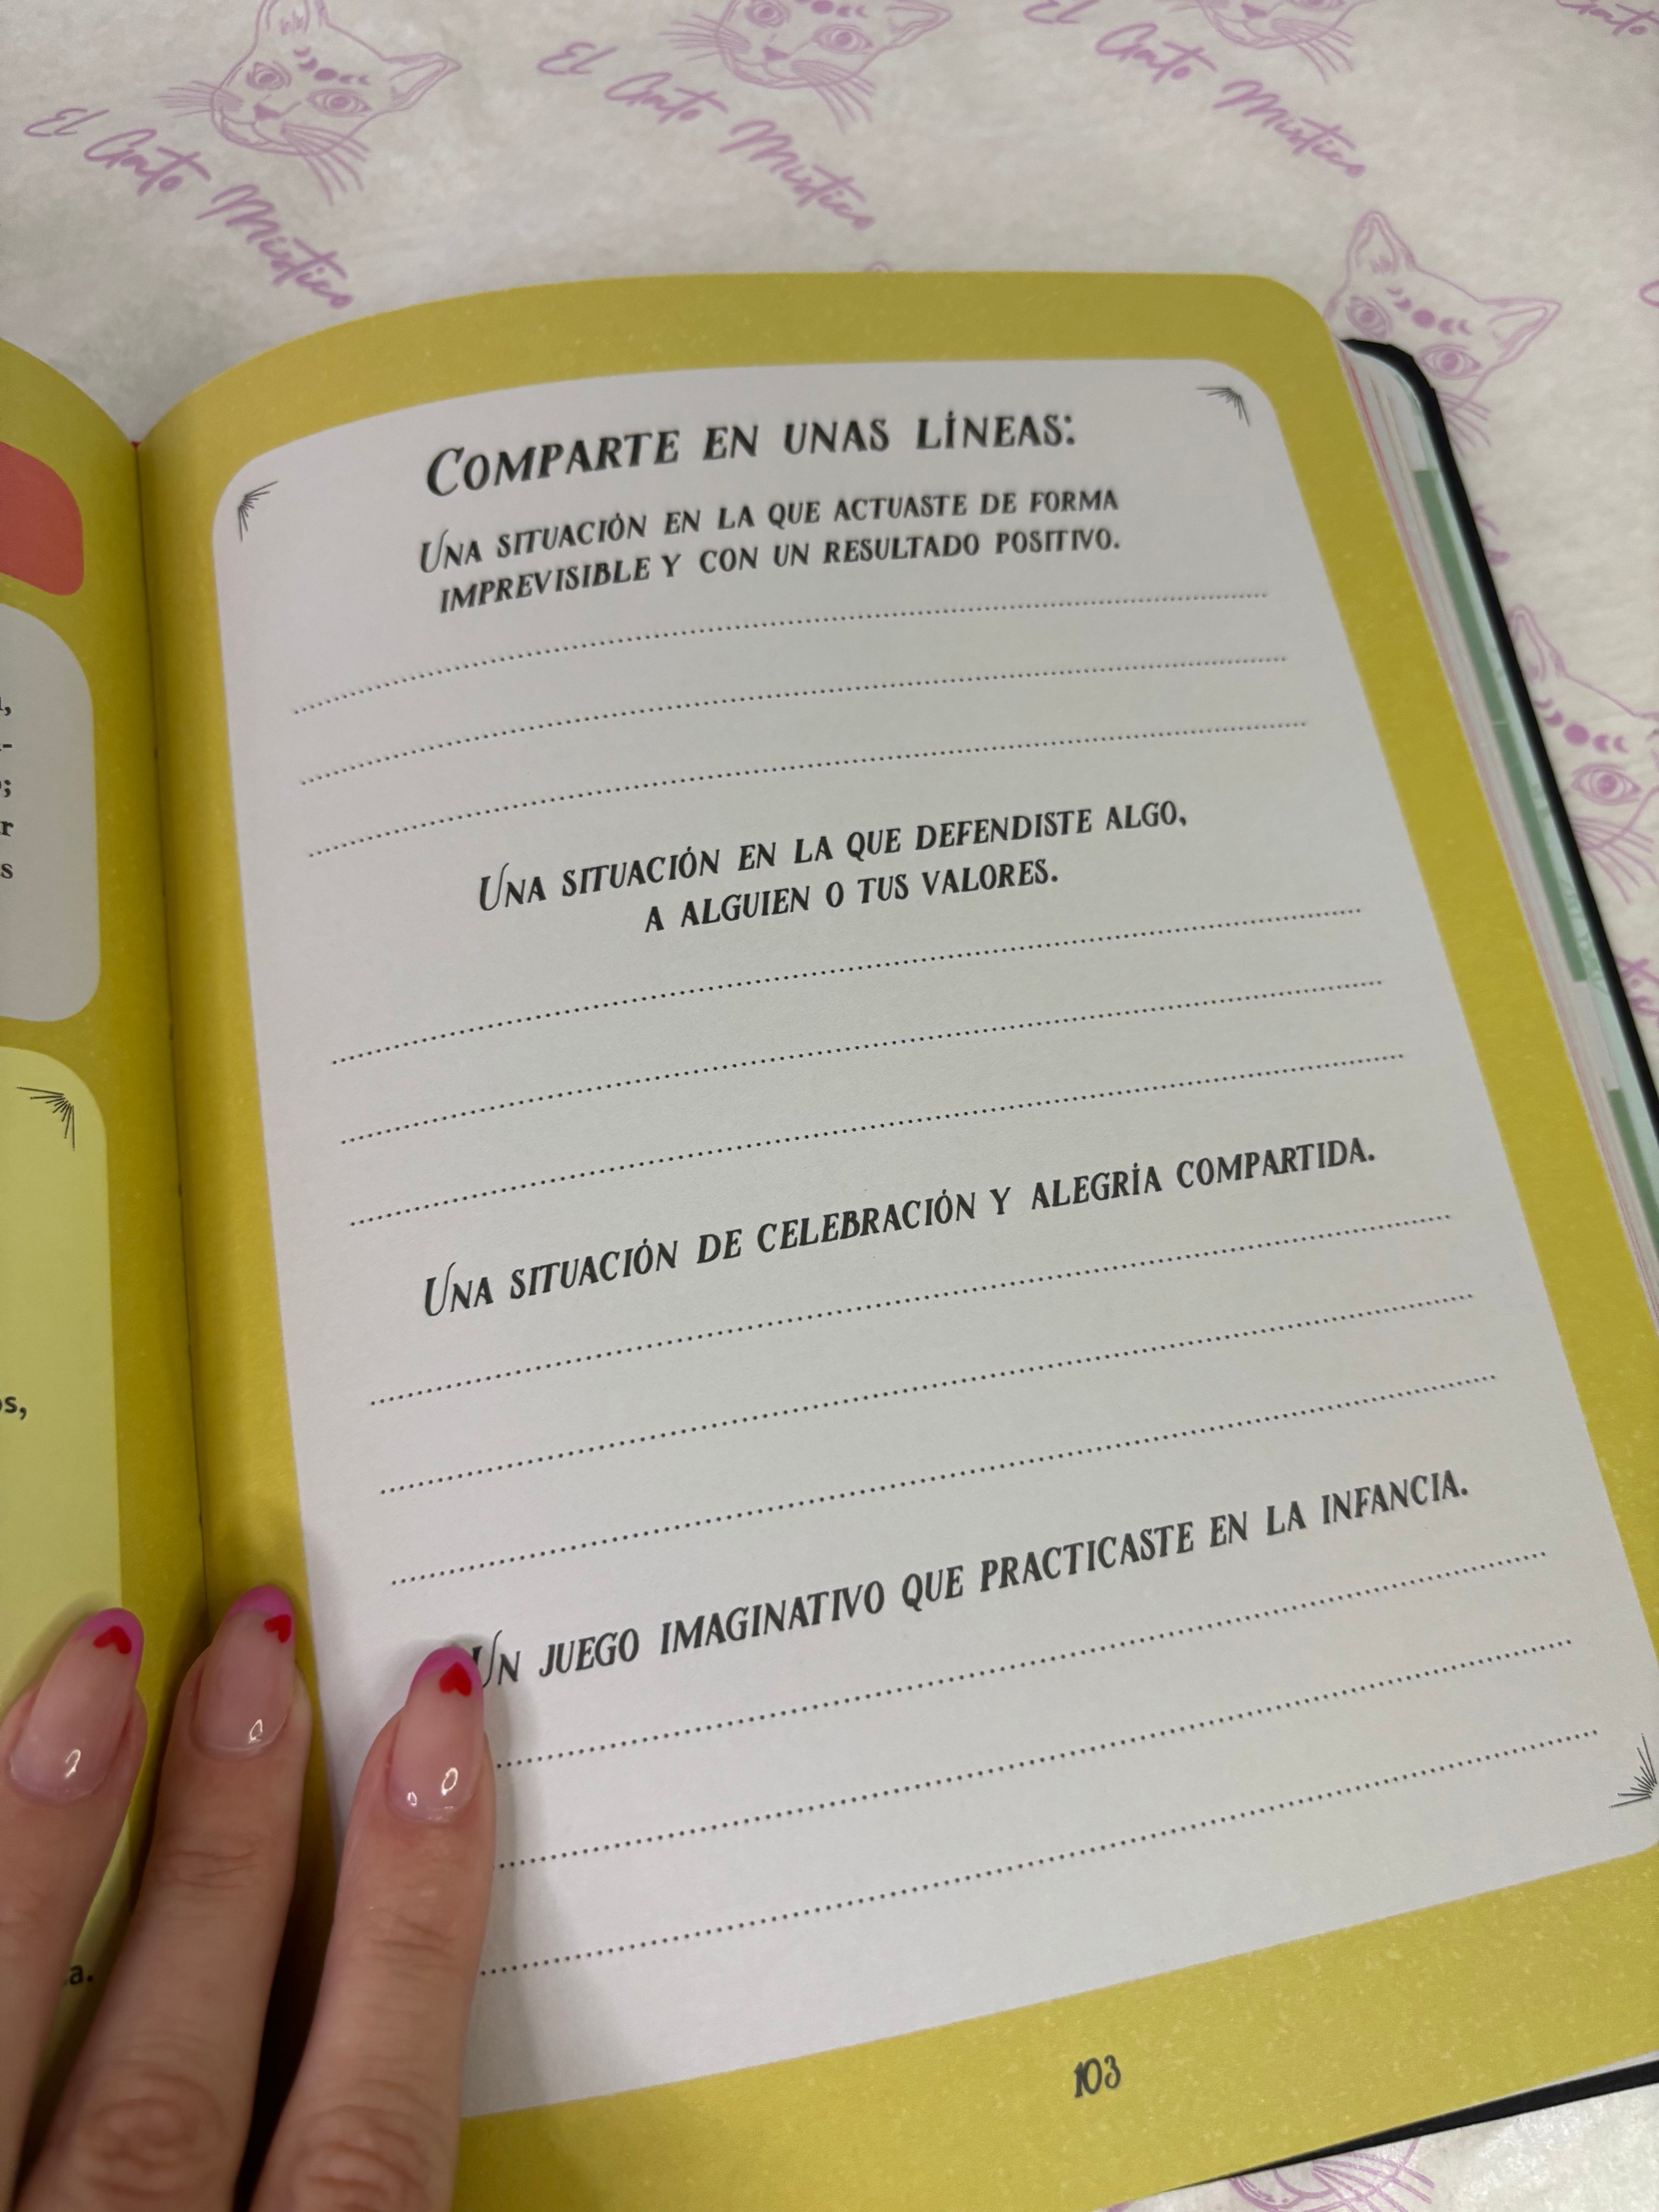 El Gato Místico
El Gato Místico
El Gato Místico
Comparte en unas líneas:
Una situación en la que actuaste de forma
imprevisible y con un resultado positivo.
Una situación en la que defendiste algo,
a alguien o tus valores.
Una situación de celebración y alegría compartida.
Un juego imaginativo que practicaste en la infancia.
103